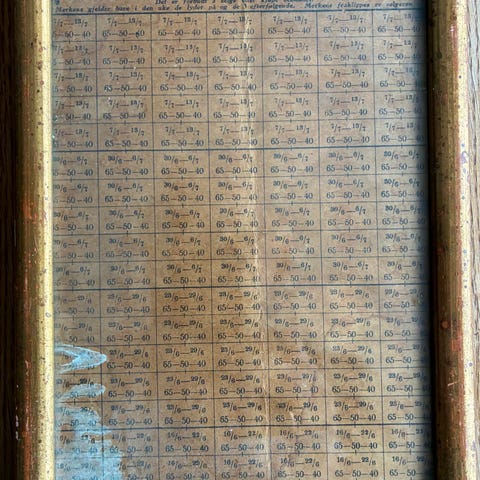 Det er forbudt å selge eller
Merkene gjelder bare i den uke de lyder på og de 2 efterfølgende. Merkene fraklippes av selgeren.
7/7—13/7 7/7—13/7 7/7—13/7 7/7—13/7 7/7—13/7 7/7—13/7 7/7—13/7
65—50—40 65—50—40 65—50—40 65—50—40 65—50—40 65—50—40 65—50—40
7/7—13/7 7/7—13/7 7/7—13/7 7/7—13/7 7/7—13/7 7/7—13/7 7/7—13/7
65—50—40 65—50—40 65—50—40 65—50—40 65—50—40 65—50—40 65—50—40
7/7—13/7 7/7—13/7 7/7—13/7 7/7—13/7 7/7—13/7 7/7—13/7 7/7—13/7
65—50—40 65—50—40 65—50—40 65—50—40 65—50—40 65—50—40 65—50—40
7/7—13/7 7/7—13/7 7/7—13/7 7/7—13/7 7/7—13/7 7/7—13/7 7/7—13/7
65—50—40 65—50—40 65—50—40 65—50—40 65—50—40 65—50—40 65—50—40
7/7—13/7 7/7—13/7 7/7—13/7 7/7—13/7 7/7—13/7 7/7—13/7 7/7—13/7
65—50—40 65—50—40 65—50—40 65—50—40 65—50—40 65—50—40 65—50—40
30/6—6/7 30/6—6/7 30/6—6/7 30/6—6/7 30/6—6/7 30/6—6/7 30/6—6/7
65—50—40 65—50—40 65—50—40 65—50—40 65—50—40 65—50—40 65—50—40
30/6—6/7 30/6—6/7 30/6—6/7 30/6—6/7 30/6—6/7 30/6—6/7 30/6—6/7
65—50—40 65—50—40 65—50—40 65—50—40 65—50—40 65—50—40 65—50—40
30/6—6/7 30/6—6/7 30/6—6/7 30/6—6/7 30/6—6/7 30/6—6/7 30/6—6/7
65—50—40 65—50—40 65—50—40 65—50—40 65—50—40 65—50—40 65—50—40
30/6—6/7 30/6—6/7 30/6—6/7 30/6—6/7 30/6—6/7 30/6—6/7 30/6—6/7
65—50—40 65—50—40 65—50—40 65—50—40 65—50—40 65—50—40 65—50—40
30/6—6/7 30/6—6/7 30/6—6/7 30/6—6/7 30/6—6/7 30/6—6/7 30/6—6/7
65—50—40 65—50—40 65—50—40 65—50—40 65—50—40 65—50—40 65—50—40
23/6—29/6 23/6—29/6 23/6—29/6 23/6—29/6 23/6—29/6 23/6—29/6 23/6—29/6
65—50—40 65—50—40 65—50—40 65—50—40 65—50—40 65—50—40 65—50—40
23/6—29/6 23/6—29/6 23/6—29/6 23/6—29/6 23/6—29/6 23/6—29/6 23/6—29/6
65—50—40 65—50—40 65—50—40 65—50—40 65—50—40 65—50—40 65—50—40
23/6—29/6 23/6—29/6 23/6—29/6 23/6—29/6 23/6—29/6 23/6—29/6 23/6—29/6
65—50—40 65—50—40 65—50—40 65—50—40 65—50—40 65—50—40 65—50—40
23/6—29/6 23/6—29/6 23/6—29/6 23/6—29/6 23/6—29/6 23/6—29/6 23/6—29/6
65—50—40 65—50—40 65—50—40 65—50—40 65—50—40 65—50—40 65—50—40
23/6—29/6 23/6—29/6 23/6—29/6 23/6—29/6 23/6—29/6 23/6—29/6 23/6—29/6
65—50—40 65—50—40 65—50—40 65—50—40 65—50—40 65—50—40 65—50—40
16/6—22/6 16/6—22/6 16/6—22/6 16/6—22/6 16/6—22/6 16/6—22/6 16/6—22/6
65—50—40 65—50—40 65—50—40 65—50—40 65—50—40 65—50—40 65—50—40
16/6—22/6 16/6—22/6 16/6—22/6 16/6—22/6 16/6—22/6 16/6—22/6 16/6—22/6
65—50—40 65—50—40 65—50—40 65—50—40 65—50—40 65—50—40 65—50—40